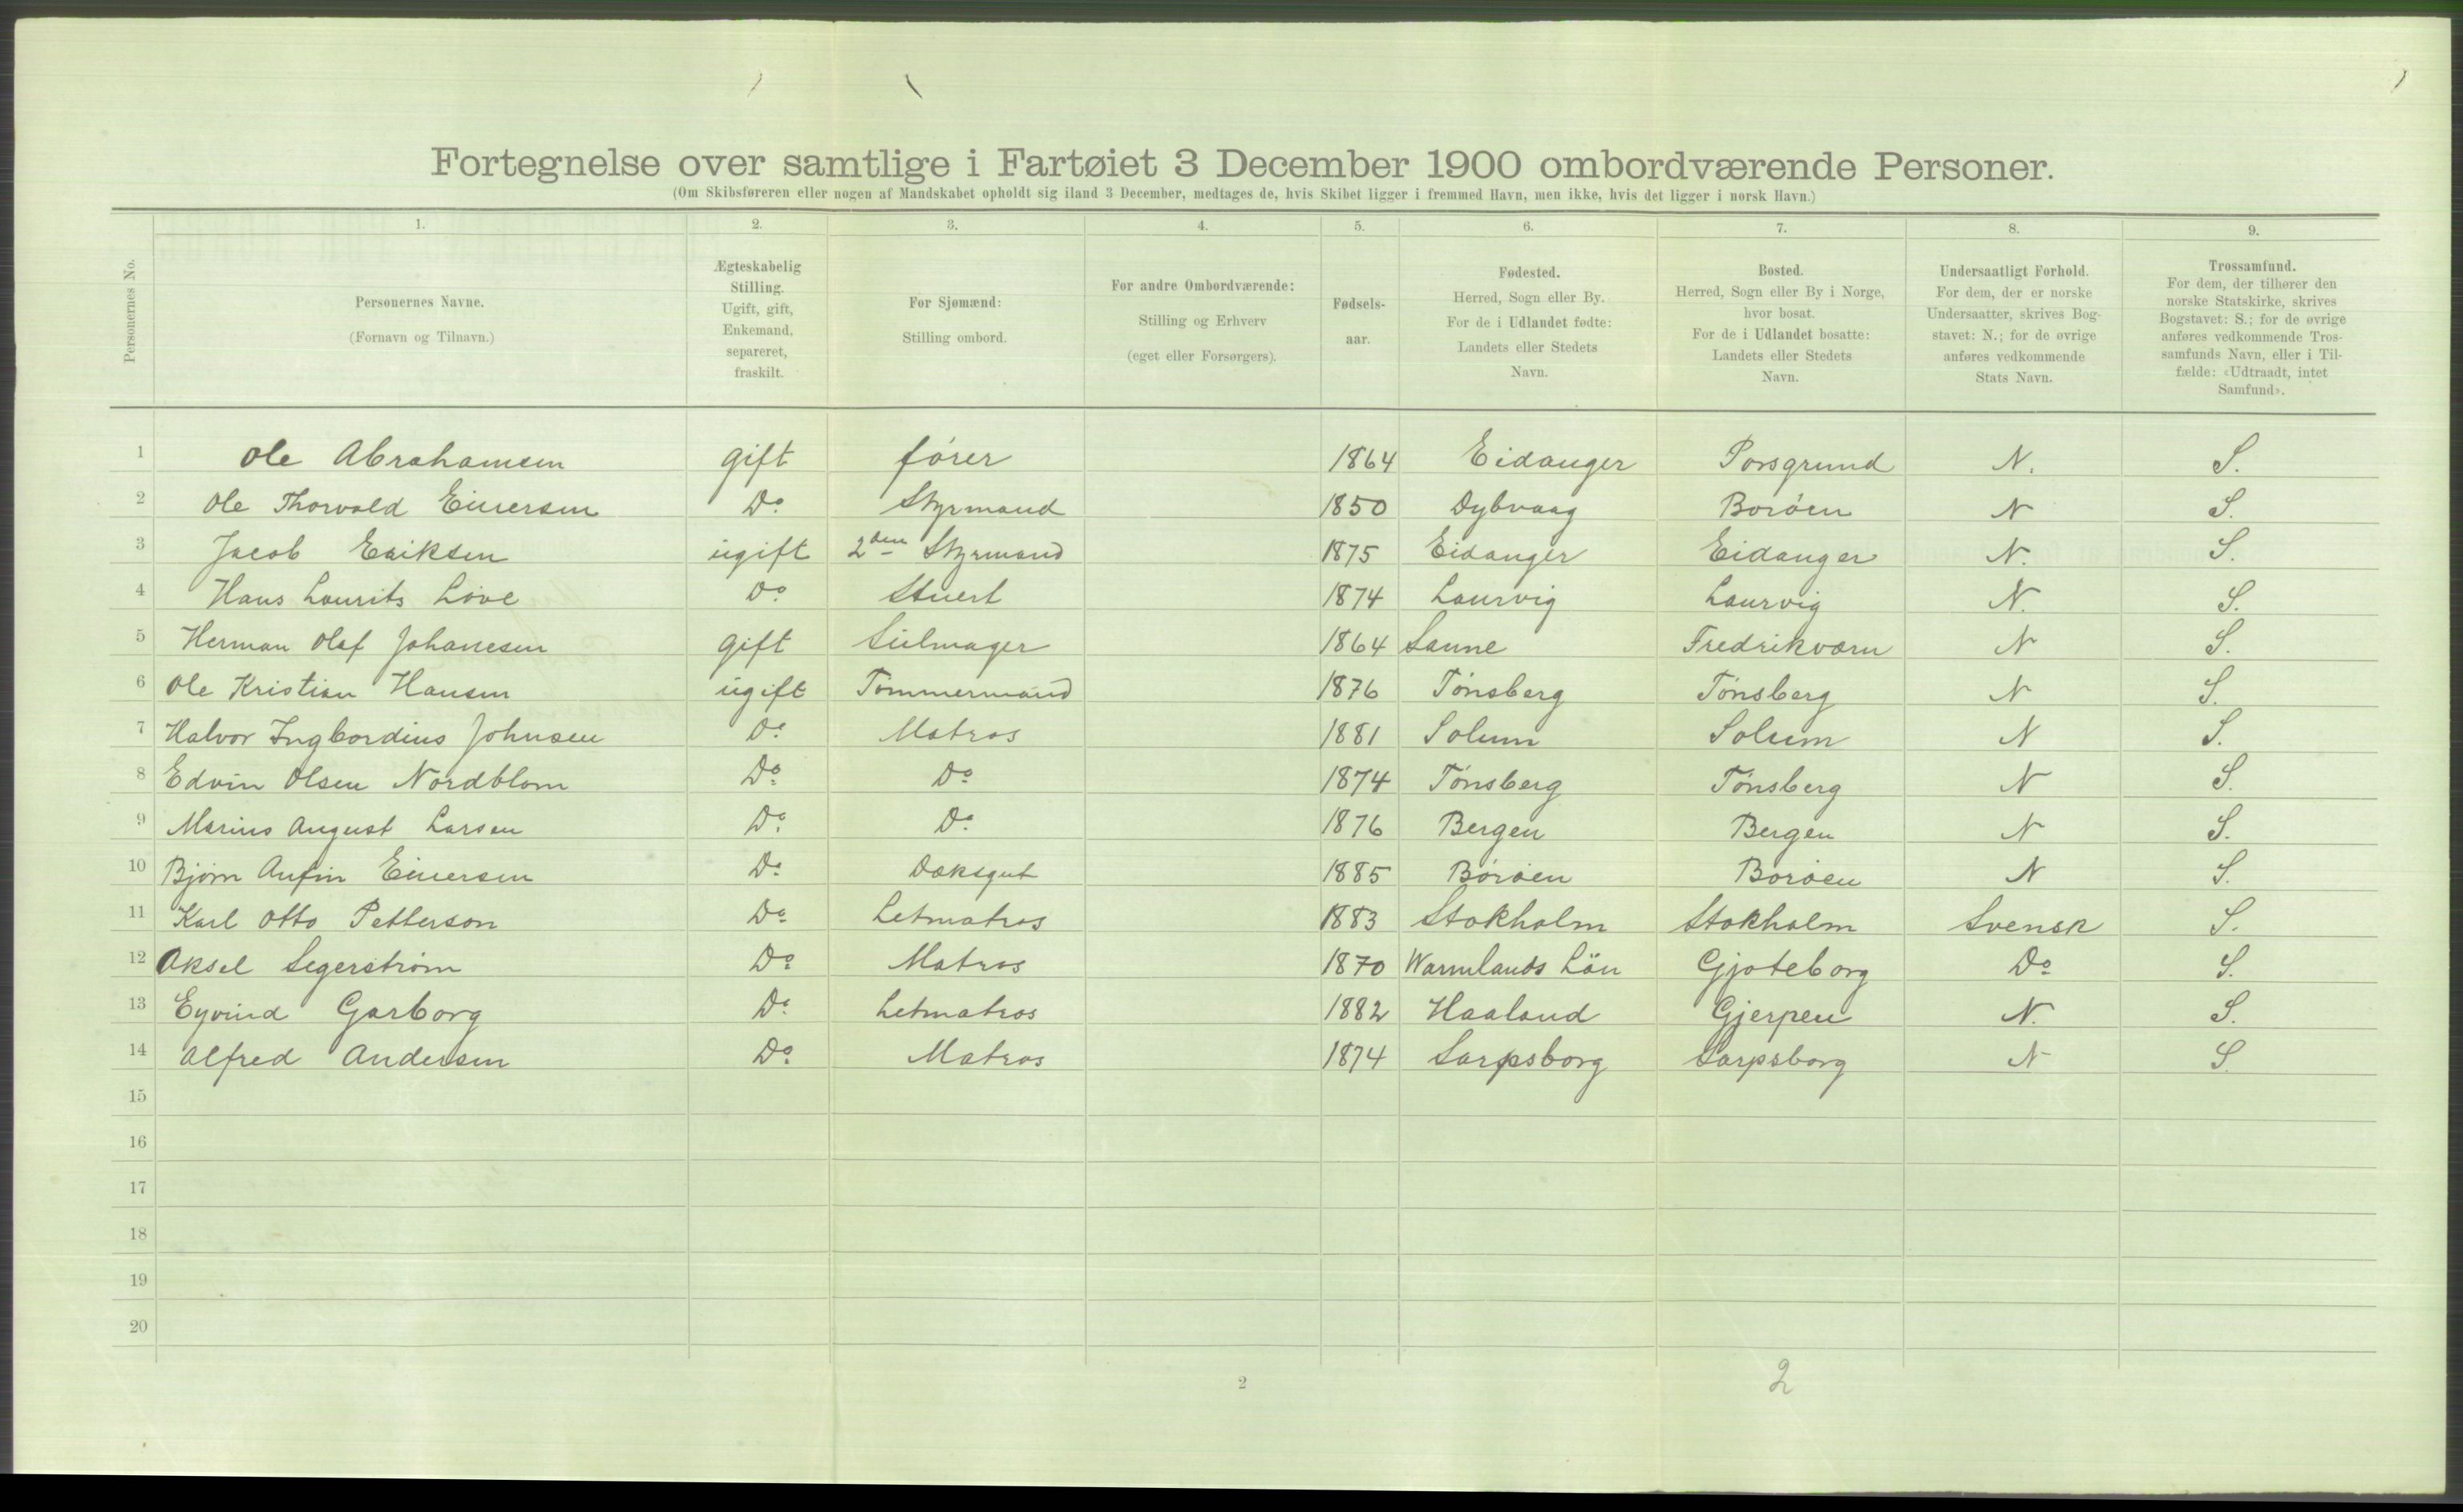 Fortegnelse over samtlige i Fartøiet 3 December 1900 ombordværende Personer.
(Om Skibsføreren eller nogen af Mandskabet opholdt sig iland 3 December, medtages de, hvis Skibet ligger i fremmed Havn, men ikke, hvis det ligger i norsk Havn.)
1. 2. 3. 4. 5. 6. 7. 8. 9.
Personernes No.
Personernes Navne.
(Fornavn og Tilnavn.)
Ægteskabelig
Stilling.
Ugift, gift,
Enkemand,
separeret,
fraskilt.
For Sjømænd:
Stilling ombord.
For andre Ombordværende:
Stilling og Erhverv
(eget eller Forsørgers).
Fødsels-
aar.
Fødested.
Herred, Sogn eller By.
For de i Udlandet fødte:
Landets eller Stedets
Navn.
Bosted.
Herred, Sogn eller By i Norge,
hvor bosat.
For de i Udlandet bosatte:
Landets eller Stedets
Navn.
Undersaatligt Forhold.
For dem, der er norske
Undersaatter, skrives Bog-
stavet: N.; for de øvrige
anføres vedkommende
Stats Navn.
Trossamfund.
For dem, der tilhører den
norske Statskirke, skrives
Bogstavet: S.; for de øvrige
anføres vedkommende Tros-
samfunds Navn, eller i Til-
fælde: «Udtraadt, intet
Samfund».
1 Ole Abrahamsen gift fører 1864 Eidanger Porsgrund N. S.
2 Ole Thorvald Einersen Do Styrmand 1850 Dybvaag Borøen N S.
3 Jacob Eriksen ugift 2den Styrmand 1875 Eidanger Eidanger N. S.
4 Hans Laurits Löve Do Stuert 1874 Laurvig Laurvig N. S.
5 Herman Olaf Johanesen gift Seilmager 1864 Sanne Fredrikværn N S.
6 Ole Kristian Hansen ugift Tømmermand 1876 Tønsberg Tønsberg N S.
7 Halvor Ingbordius Johnsen Do Matros 1881 Solum Solum N S.
8 Edvin Olsen Nordblom Do Do 1874 Tønsberg Tønsberg N S.
9 Marius August Larsen Do Do 1876 Bergen Bergen N S.
10 Bjørn Anfin Einersen Do Dæksgut 1885 Borøen Borøen N S.
11 Karl Otto Petterson Do Letmatros 1883 Stokholm Stokholm Svensk S.
12 Aksel Segerström Do Matros 1870 Warmlands Län Gjøteborg Do S.
13 Eyvind Garborg Do Letmatros 1882 Haaland Gjerpen N. S.
14 Alfred Andersen Do Matros 1874 Sarpsborg Sarpsborg N S.
15
16
17
18
19
20
2 2